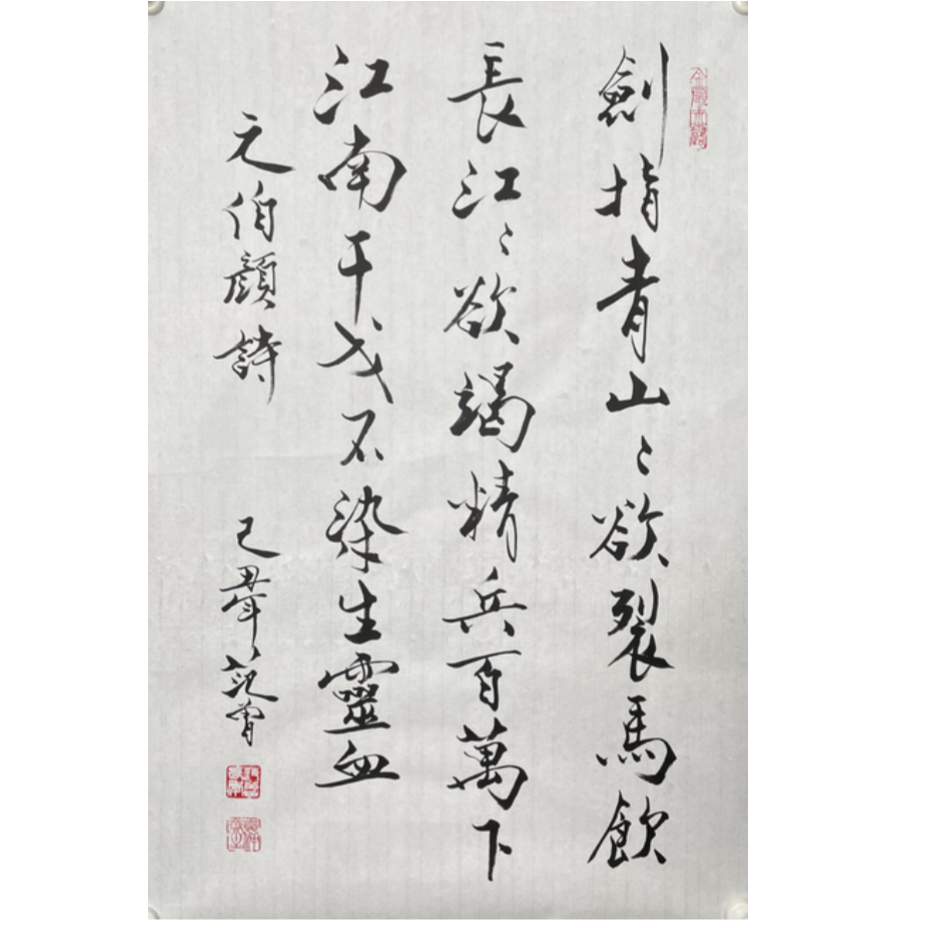 劍指青山〻欲裂馬飲
長江〻欲竭精兵百萬下
江南干戈不染生靈血
元伯顏詩 己丑年 范曾